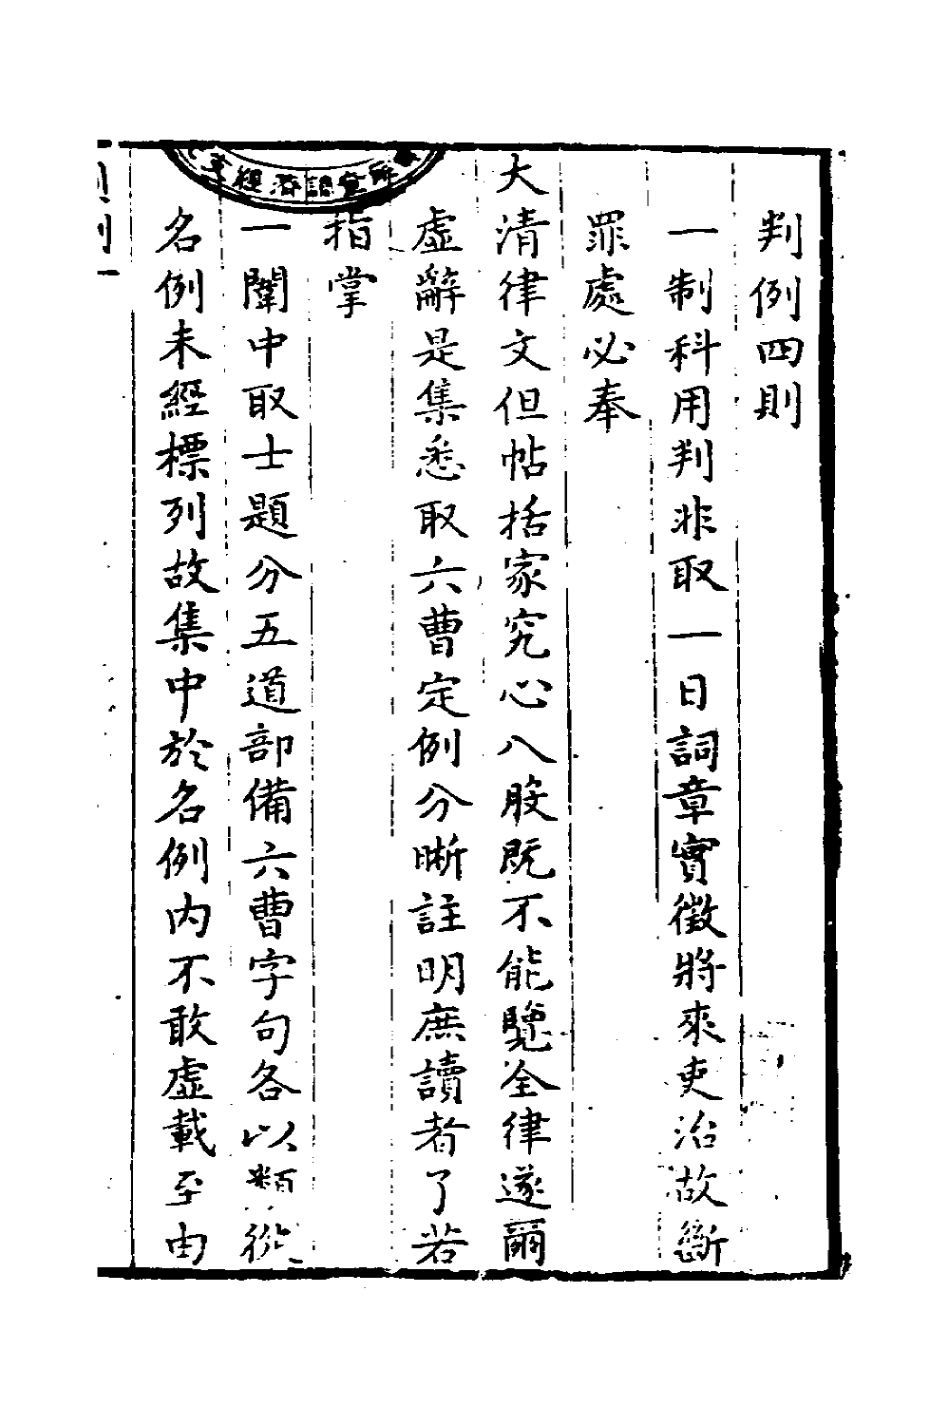 判例四則
一制科用判非取一日詞章實徵將來吏治故斷
罪處必奉
大清律文但帖括家究心八股既不能覽全律遂爾
虛辭是集悉取六曹定例分晰註明庶讀者了若
指掌
一闈中取士題分五道部備六曹字句各以類從
名例未經標列故集中於名例內不敢虛載至由